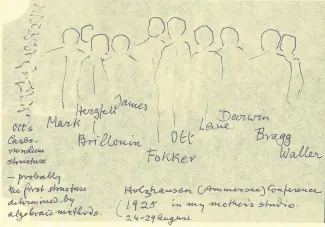 James
Herzfeld
Mark
Brillouin
Ott
Fokker
Laue
Darwin
Bragg
Waller
Ott's
Carbo-
rundum
structure
– probably
the first structure
determined by
algebraic methods.
Holzhausen (Ammersee) Conference
(1925 in my mother's studio.
24–29 August